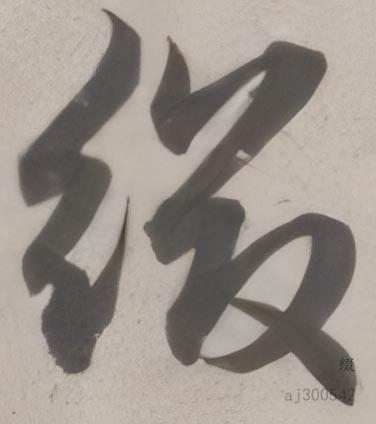 缀
缀
aj300542